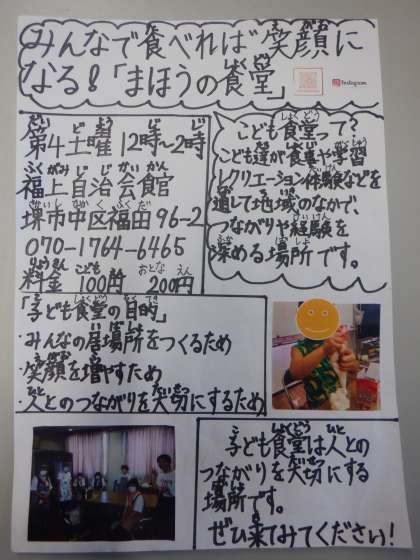 みんなで食べれば笑顔に
なる！「まほうの食堂」
Instagram
第4土曜 12時～2時
福上自治会館
堺市中区福田96-2
070-1764-6465
料金 こども100円 おとな200円
こども食堂って？
こども達が食事や学習
レクリエーション体験などを
通して地域のなかで、
つながりや経験を
深める場所です。
「子ども食堂の目的」
・みんなの居場所をつくるため
・笑顔を増やすため
・人とのつながりを大切にするため
子ども食堂は人との
つながりを大切にする
場所です。
ぜひ来てみてください！